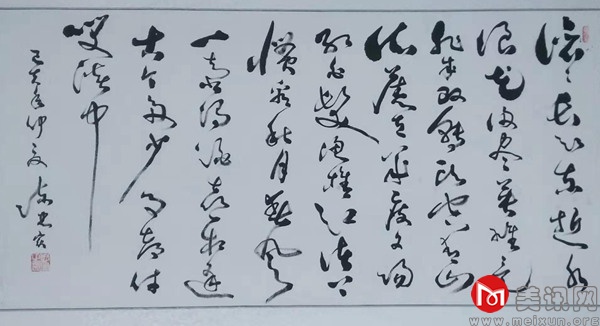 滚滚长江东逝水
浪花淘尽英雄是
非成败转头空青山
依旧在几度夕阳
红白发渔樵江渚上
惯看秋月春风
一壶浊酒喜相逢
古今多少事都付
笑谈中
己亥年仲夏
美讯网
www.meixun.org